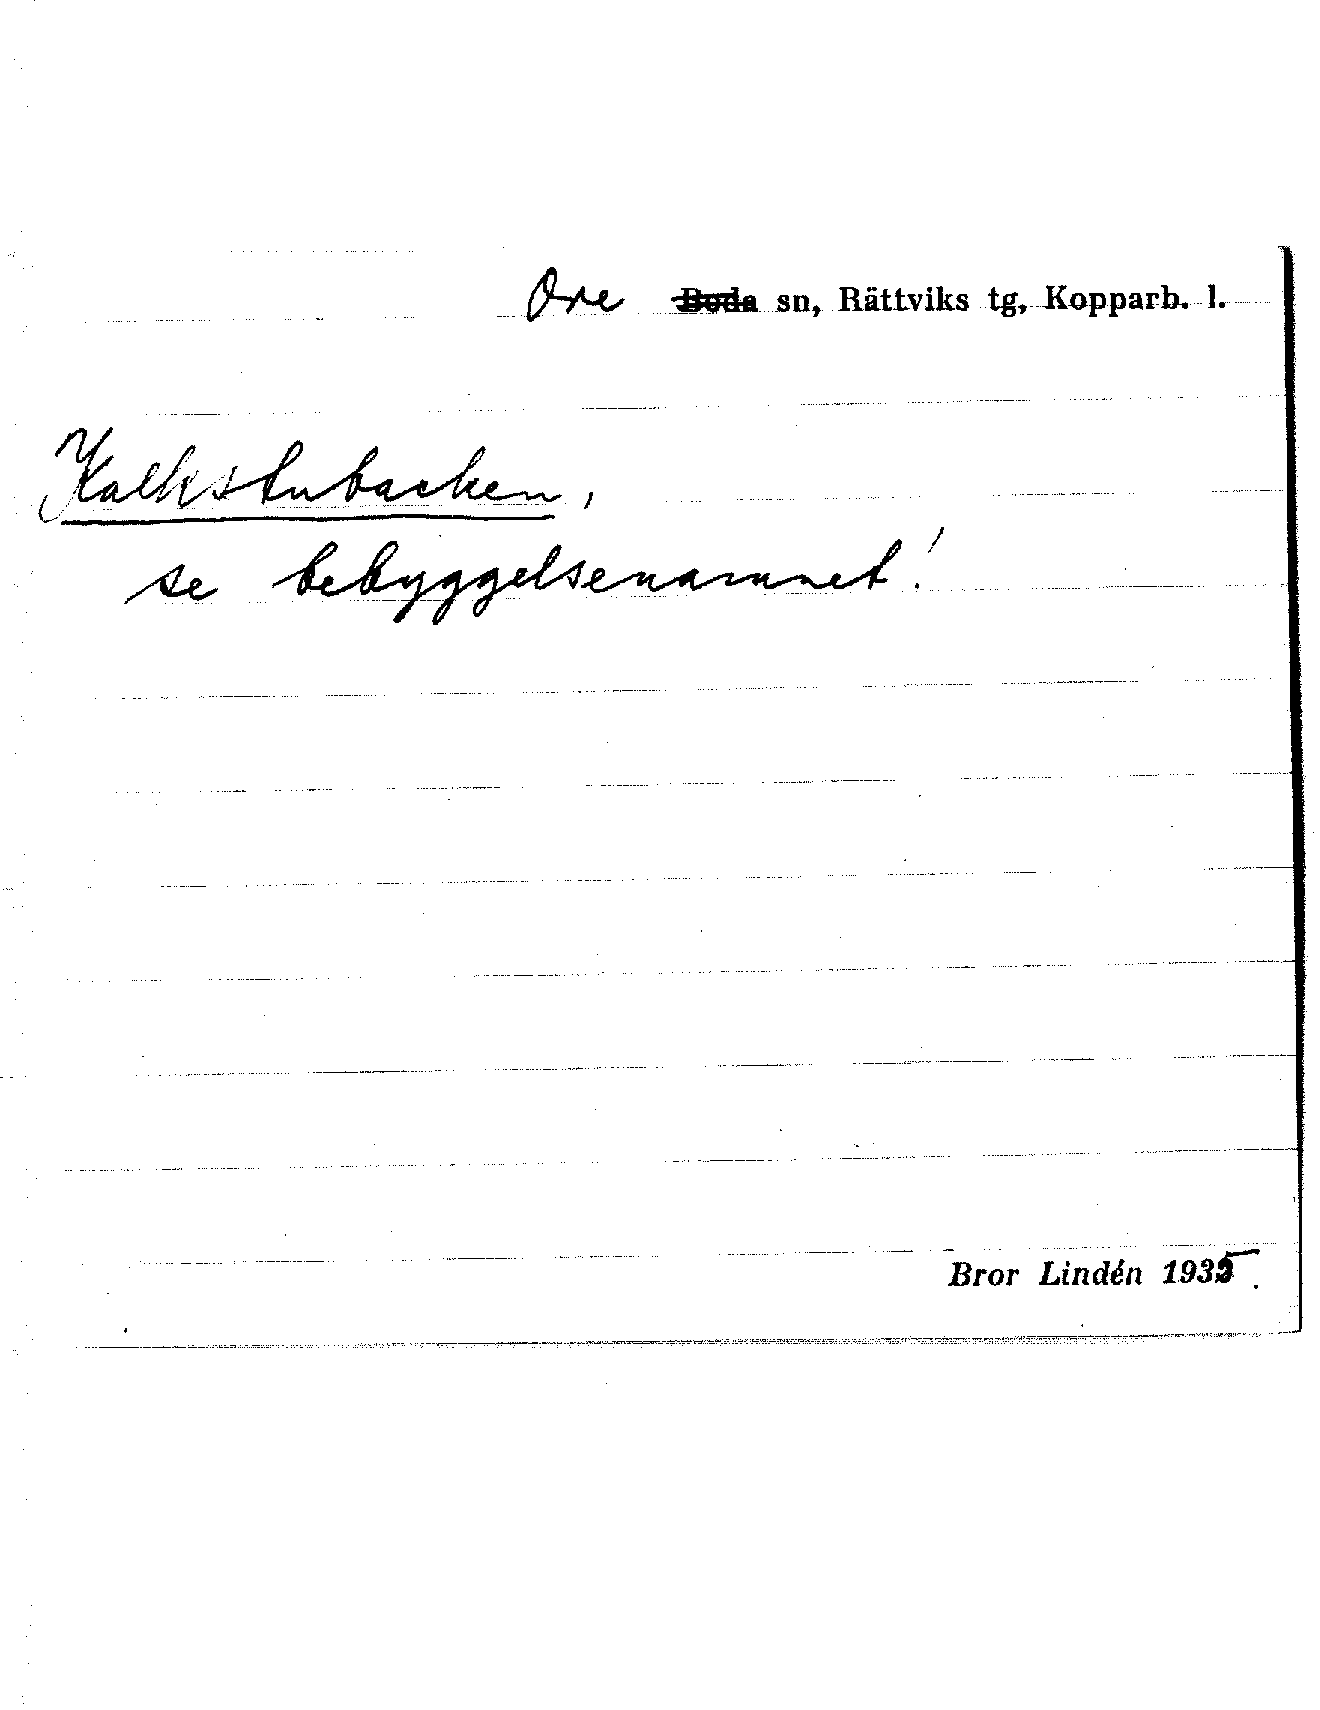 Ore Boda sn, Rättviks tg, Kopparb. l.
Kalkstubacken,
se bebyggelsenamnet!
Bror Lindén 1935.